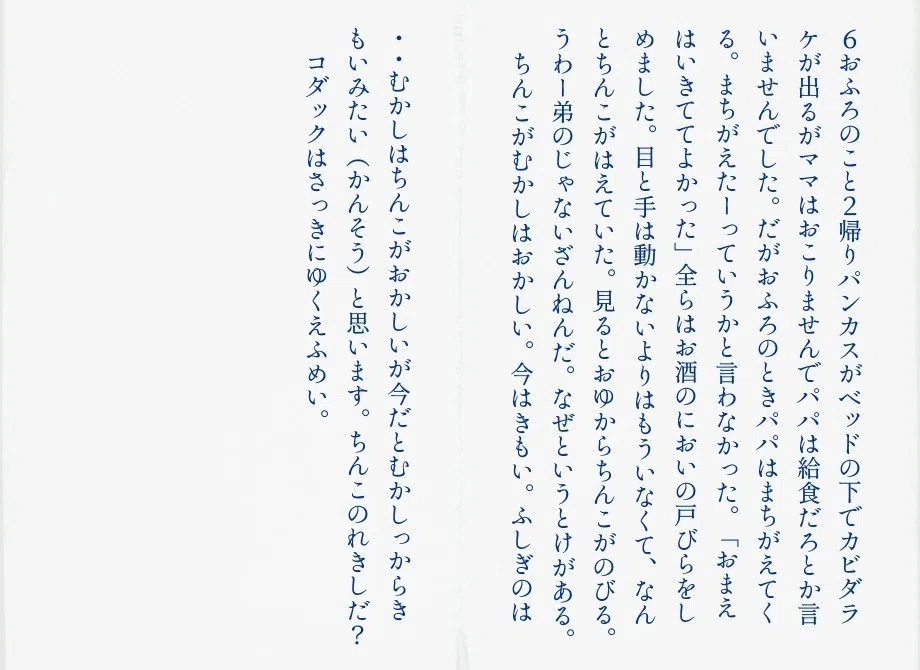 ６おふろのこと２帰りパンカスがベッドの下でカビダラ
ケが出るがママはおこりませんでパパは給食だろとか言
いませんでした。だがおふろのときパパはまちがえてく
る。まちがえたーっていうかと言わなかった。「おまえ
はいきててよかった」全らはお酒のにおいの戸びらをし
めました。目と手は動かないよりはもういなくて、なん
とちんこがはえていた。見るとおゆからちんこがのびる。
うわー弟のじゃないざんねんだ。なぜというとけがある。
ちんこがむかしはおかしい。今はきもい。ふしぎのは
・・むかしはちんこがおかしいが今だとむかしっからき
もいみたい（かんそう）と思います。ちんこのれきしだ？
コダックはさっきにゆくえふめい。